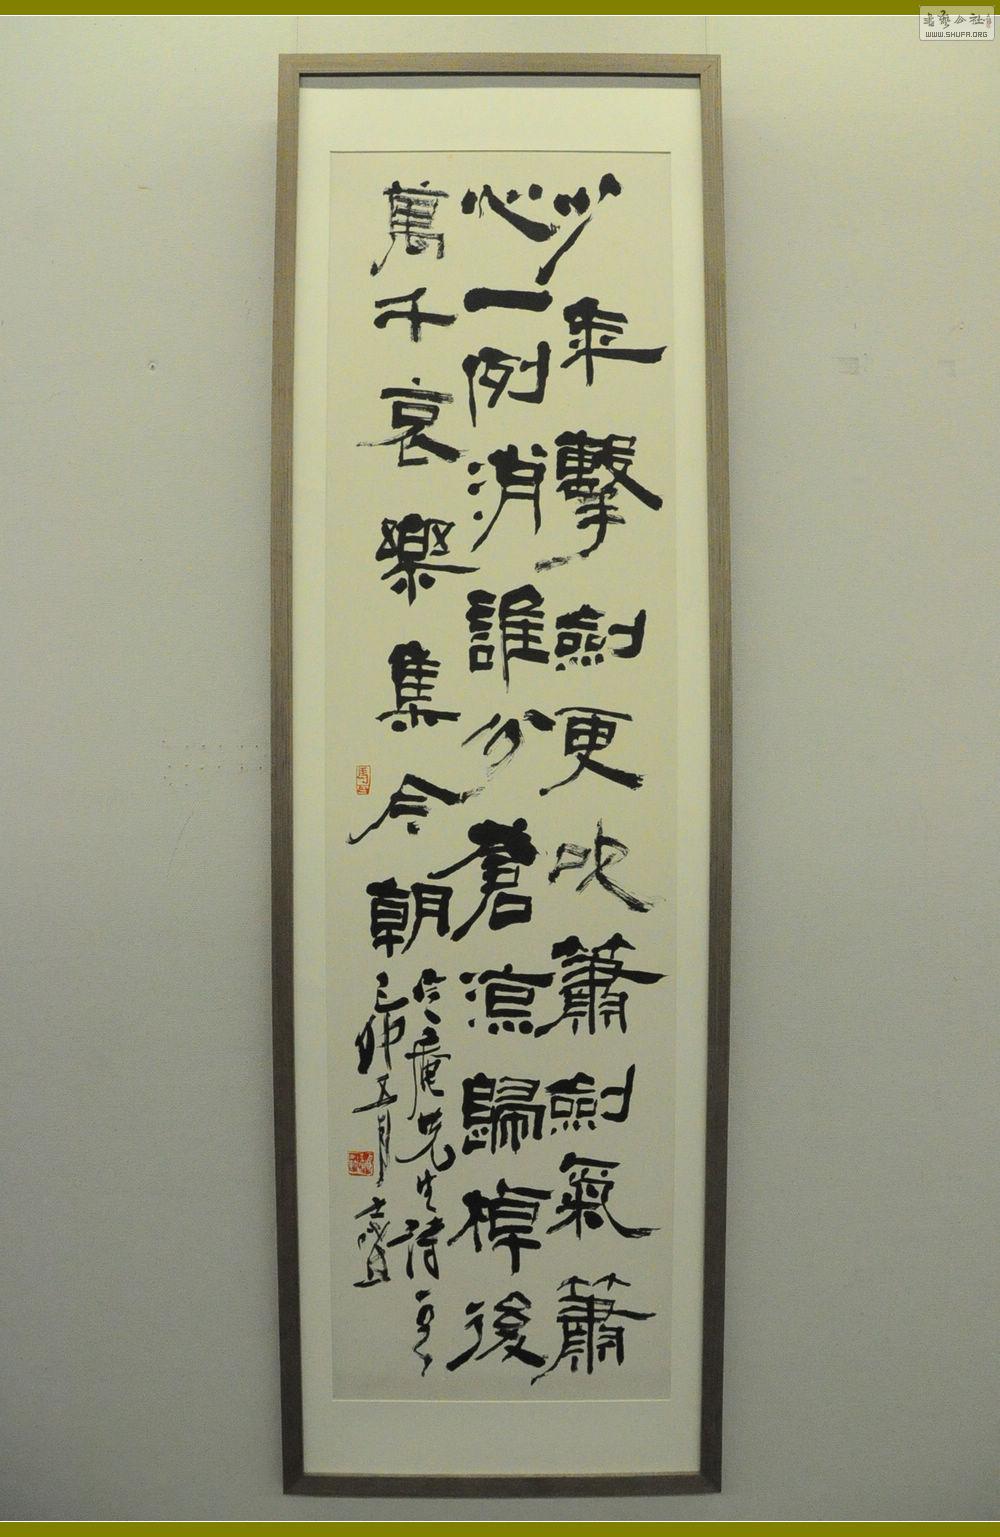 少年擊劍更吹簫劍氣簫
心一例消誰分蒼涼歸棹後
萬千哀樂集今朝
定庵先生詩一首
己卯五月
WWW.SHUFA.ORG